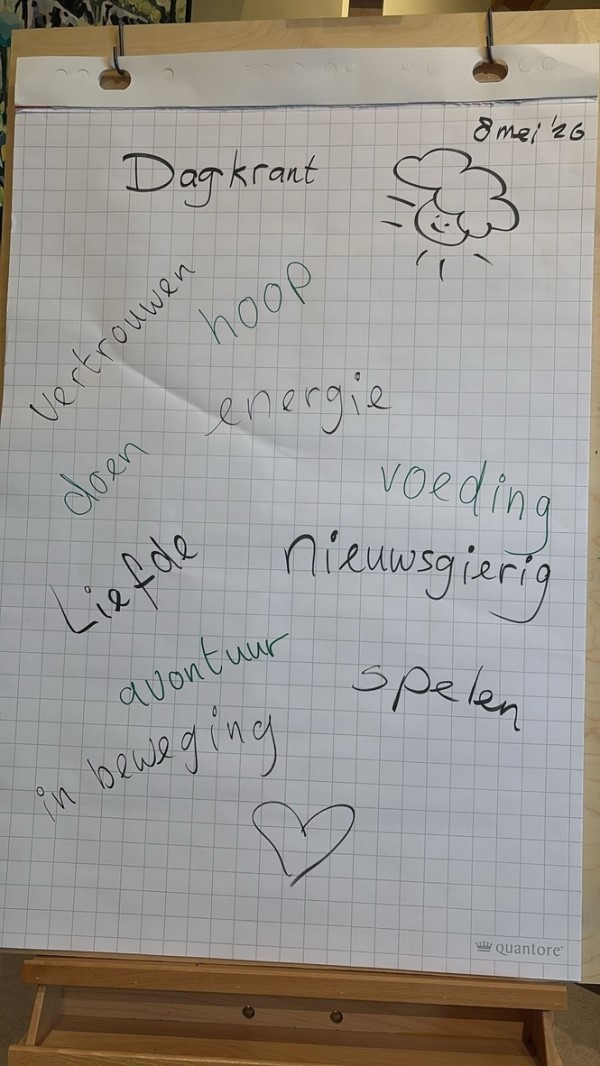 8 mei '26
Dagkrant
vertrouwen
hoop
energie
doen
voeding
Liefde
nieuwsgierig
avontuur
spelen
in beweging
quantore